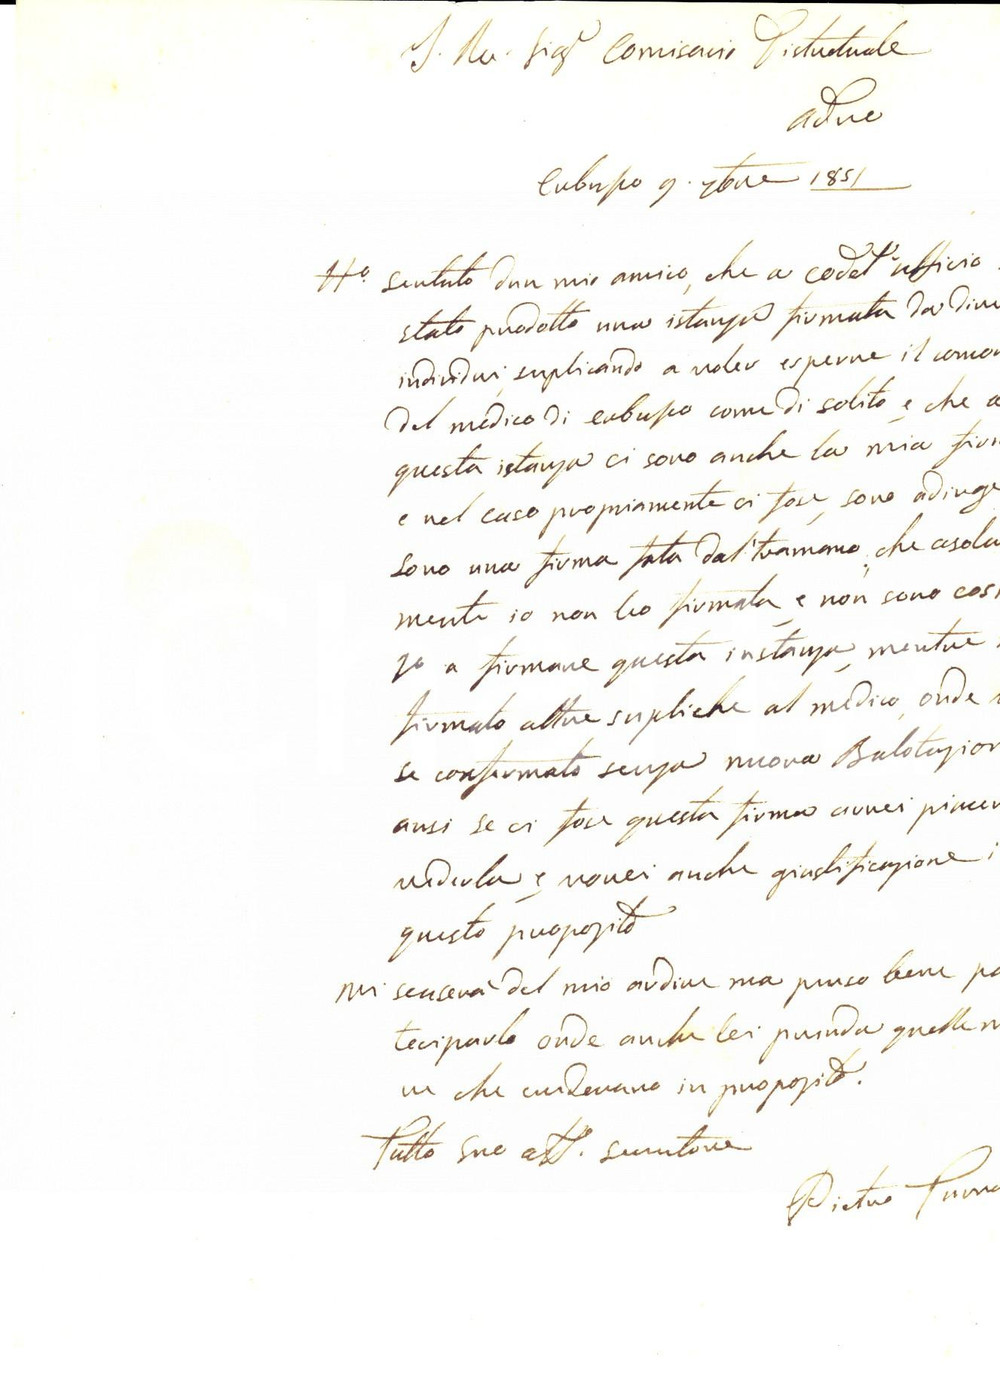 I. Re. Sigr Comisario Distretuale
adro
9. 7bre 1851
Ho sentuto dun mio amico, che a codest ufficio
stato prodotto una istanza firmata da dive
individui, suplicando a voler esperire il conco
del medico di come di solito, e che a
questa istanza ci sono anche la mia firm
e nel caso propriamente ci fose, sono a dirge
sono una firma fata dal'tramano, che asolu
mente io non ho firmata, e non sono cosi
zo a firmare questa instanza, mentre
firmato altre supliche al medico, onde
se confermato senza nuova Balotazion
ansi se ci fose questa firma avrei piacer
vederla e, vorrei anche giustificazione i
questo proposito
Mi scuserà del mio ardire ma penso bene pa
teciparlo onde anche lei prenda quelle m
re che crederano in proposito.
Tutto suo servitore
Pietro